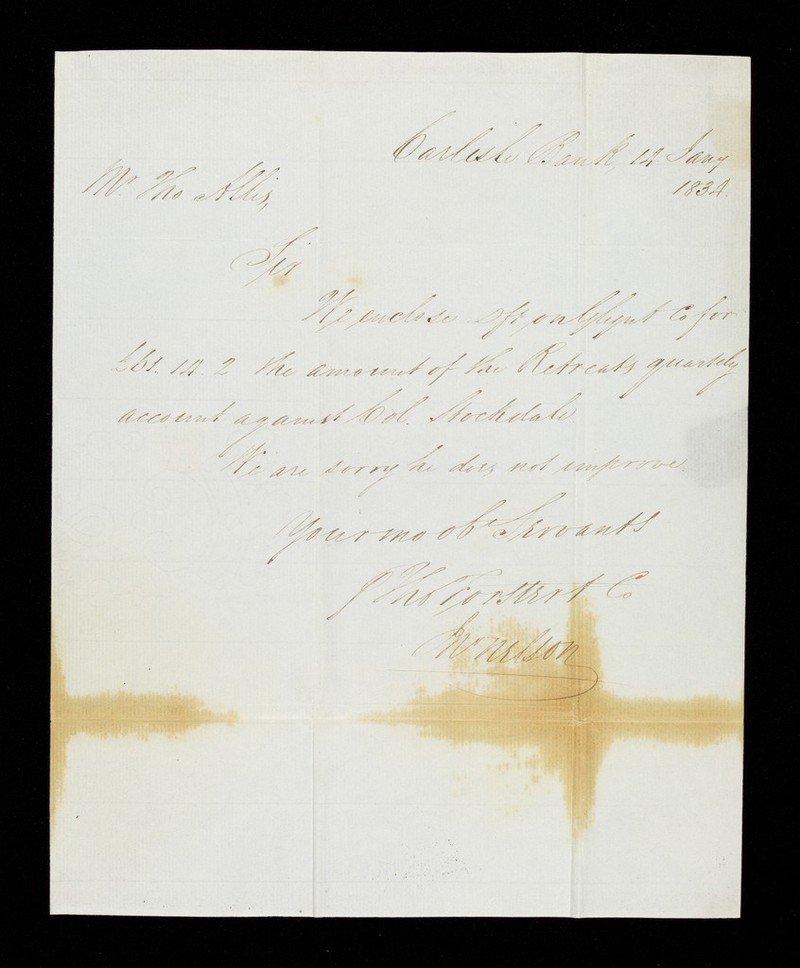 Carlisle Bank, 14 Jany
1834.
Mr. Tho Allis,
Sir
We enclose Dft on Glynt Co for
£61. 14. 2 the amount of the Retreats quarterly
account against Col. Stockdale
We are sorry he does not improve.
Your mo obt Servants
Tho Forster & Co
Wm Nelson